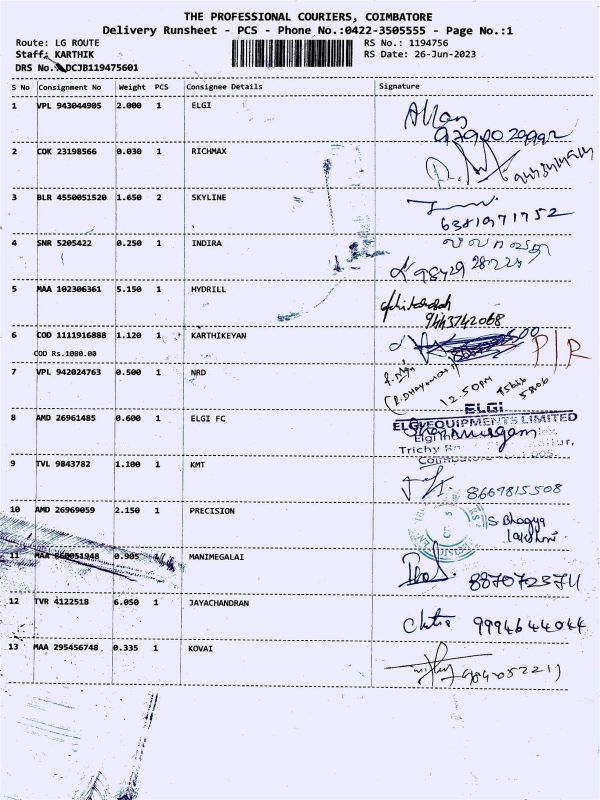 THE PROFESSIONAL COURIERS, COIMBATORE
Delivery Runsheet - PCS - Phone No.:0422-3505555 - Page No.:1
Route: LG ROUTE RS No.: 1194756
Staff: KARTHIK RS Date: 26-Jun-2023
DRS No.: DCJB119475601
S No Consignment No Weight PCS Consignee Details Signature
1 VPL 943044905 2.000 1 ELGI
2 COK 23198566 0.030 1 RICHMAX
3 BLR 4550051520 1.650 2 SKYLINE
6381971752
4 SNR 5205422 0.250 1 INDIRA
5 MAA 102306361 5.150 1 HYDRILL
9443742068
6 COD 1111916888 1.120 1 KARTHIKEYAN P/R
COD Rs.1080.00
7 VPL 942024763 0.500 1 NRD
12.50PM
8 AMD 26961485 0.600 1 ELGI FC
ELGI
ELGI EQUIPMENTS LIMITED
9 TVL 9843782 1.100 1 KMT
8667815508
10 AMD 26969059 2.150 1 PRECISION
S Bhagya
lakshmi
11 MAA 860051948 0.905 1 MANIMEGALAI
12 TVR 4122518 6.050 1 JAYACHANDRAN
Chitra 9994644044
13 MAA 295456748 0.335 1 KOVAI